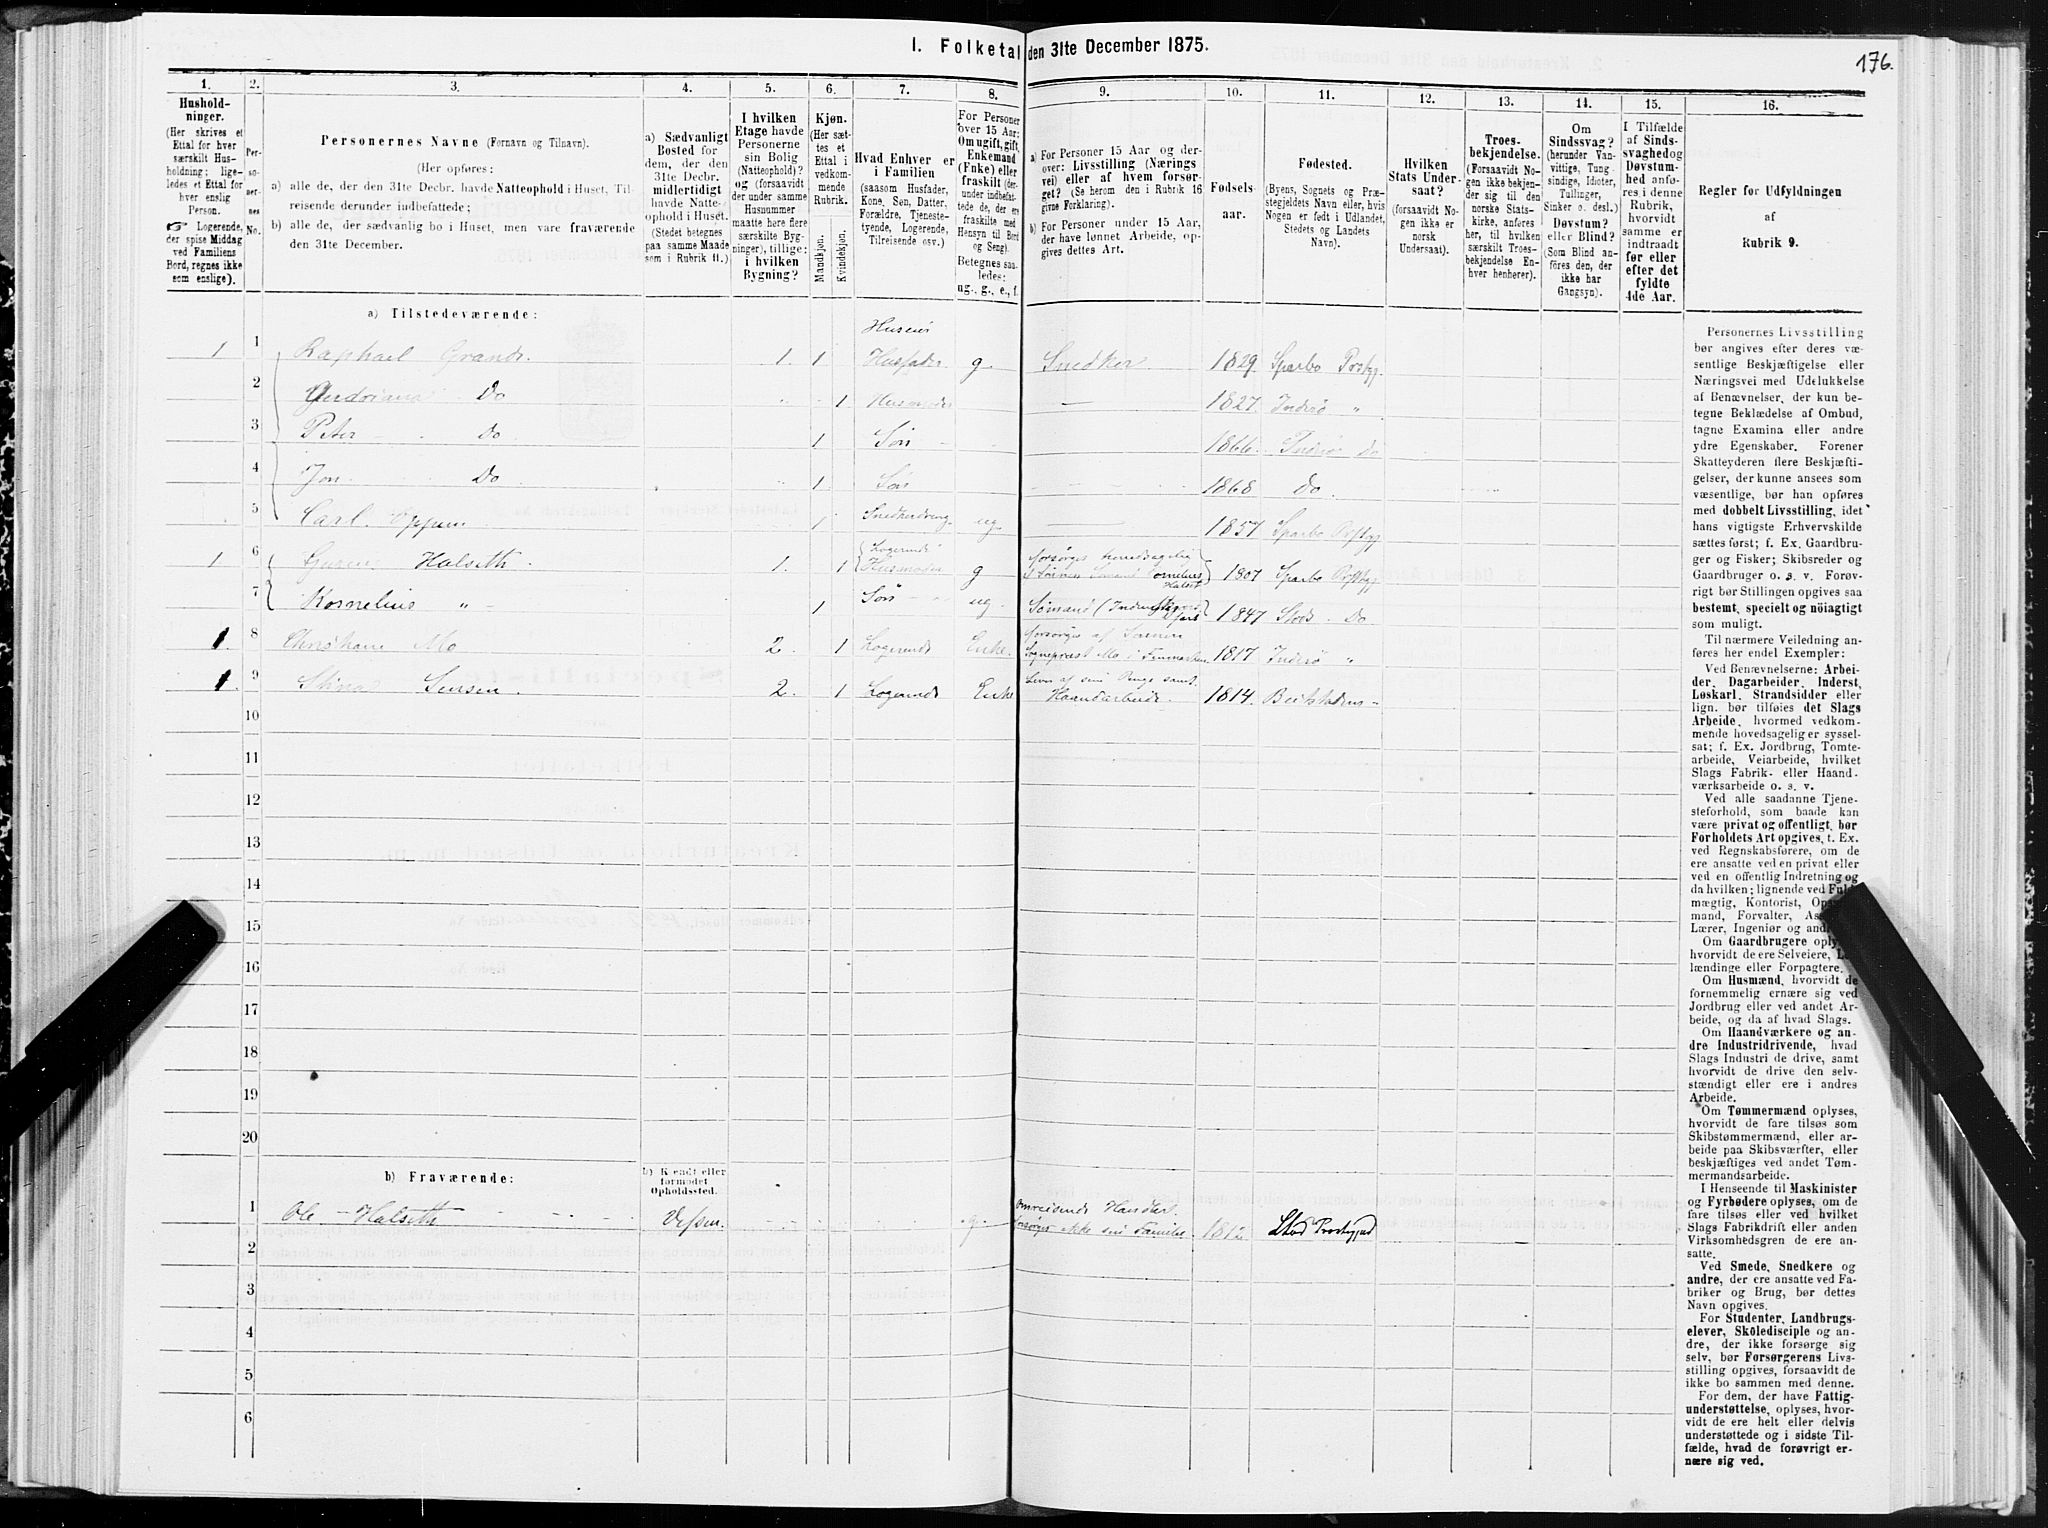 I. Folketal den 31te December 1875.
176.
1.
2.
3.
4.
5.
6.
7.
8.
9.
10.
11.
12.
13.
14.
15.
16.
Hushold-
ninger.
(Her skrives et
Ettal for hver
særskilt Hus-
holdning; lige-
ledes et Ettal for
hver enslig
Person.
☞ Logerende,
der spise Middag
ved Familiens
Bord, regnes ikke
som enslige).
Per-
so-
ner-
nes
No.
Personernes Navne (Fornavn og Tilnavn).
(Her opføres:
a) alle de, der den 31te Decbr. havde Natteophold i Huset, Til-
reisende derunder indbefattede;
b) alle de, der sædvanlig bo i Huset, men vare fraværende
den 31te December.
a) Sædvanligt
Bosted for
dem, der den
31te Decbr.
midlertidigt
havde Natte-
ophold i Huset.
(Stedet betegnes
paa samme Maade
som i Rubrik 11.)
I hvilken
Etage havde
Personerne
sin Bolig
(Natteophold)?
og (forsaavidt
der under samme
Husnummer
maatte høre flere
særskilte Byg-
ninger), tillige:
i hvilken
Bygning?
Kjøn.
(Her sæt-
tes et
Ettal i
vedkom-
mende
Rubrik.
Mandkjøn.
Kvindekjøn.
Hvad Enhver er
i Familien
(saasom Husfader,
Kone, Søn, Datter,
Forældre, Tjeneste-
tyende, Logerende,
Tilreisende osv.)
For Personer
over 15 Aar:
Om ugift, gift,
Enkemand
(Enke) eller
fraskilt (der-
under indbefat-
tede de, der ere
fraskilte med
Hensyn til Bord
og Seng).
Betegnes saa-
ledes:
ug., g., e., f.
a) For Personer 15 Aar og der-
over: Livsstilling (Nærings
vei) eller af hvem forsør-
get? (Se herom den i Rubrik 16
givne Forklaring).
b) For Personer under 15 Aar,
der have lønnet Arbeide, op-
gives dettes Art.
Fødsels-
aar.
Fødested.
(Byens, Sognets og Præ-
stegjeldets Navn eller, hvis
Nogen er født i Udlandet,
Stedets og Landets
Navn).
Hvilken
Stats Under-
saat?
(forsaavidt No-
gen ikke er
norsk
Undersaat).
Troes-
bekjendelse.
(Forsaavidt No-
gen ikke bekjen-
der sig til den
norske Stats-
kirke, anføres
her, til hvilken
særskilt Troes-
bekjendelse En-
hver henhører).
Om
Sindssvag?
(herunder Van-
vittige, Tung-
sindige, Idioter,
Tullinger,
Sinker o. desl.)
Døvstum?
eller Blind?
(Som Blind an-
føres den, der
ikke har
Gangsyn).
I Tilfælde
af Sinds-
svaghed og
Døvstum-
hed anfø-
res i denne
Rubrik,
hvorvidt
samme er
indtraadt
før eller
efter det
fyldte
4de Aar.
Regler for Udfyldningen
af
Rubrik 9.
a) Tilstedeværende:
Huseier
1 1 Raphael Grande. 1. 1 Husfader g Snedker. 1829. Sparbo Prstgj.
2 Do " 1 Husmoder — 1827. Inderø "
3 Peter Do 1 Søn 1866. Inderø Do
4 Jon Do 1 Søn 1868 Do.
5 Carl 1 ug. 1857 Sparbo
1 6 Halseth. 1. 1 Logerende Husmoder g forsørges hovedsagelig 1807 Sparbo
7 Kornelius " 1 Søn ug. Sømand 1847 Stods Do
1. 8 Christiane Mo 2. 1 Logerende Enke. forsørges af Sønnen
Sogneprest Mo i Finmarken 1817 Inderø "
1. 9 Stina Jensen. 2. 1 Logerende Enke Lever af sine Penge samt
Haandarbeide. 1814. Beitstadens
10
11
12
13
14
15
16
17
18
19
20
b) Fraværende:
b) Kjendt eller
formodet
Opholdssted.
1 Ole Halseth g. omreisende Handler.
forsørger ikke sin Familie 1812 Stod
2
3
4
5
6
Personernes Livsstilling
bør angives efter deres væ-
sentlige Beskjæftigelse eller
Næringsvei med Udelukkelse
af Benævnelser, der kun be-
tegne Beklædelse af Ombud,
tagne Examina eller andre
ydre Egenskaber. Forener
Skatteyderen flere Beskjæfti-
gelser, der kunne ansees som
væsentlige, bør han opføres
med dobbelt Livsstilling, idet
hans vigtigste Erhvervskilde
sættes først; f. Ex. Gaardbru-
ger og Fisker; Skibsreder og
Gaardbruger o. s. v. Forøv-
rigt bør Stillingen opgives saa
bestemt, specielt og nöiagtigt
som muligt.
Til nærmere Veiledning an-
føres her endel Exempler:
Ved Benævnelserne: Arbei-
der, Dagarbeider, Inderst,
Løskarl, Strandsidder eller
lign. bør tilføies det Slags
Arbeide, hvormed vedkom-
mende hovedsagelig er syssel-
sat; f. Ex. Jordbrug, Tomte-
arbeide, Veiarbeide, hvilket
Slags Fabrik- eller Haand-
værksarbeide o. s. v.
Ved alle saadanne Tjene-
steforhold, som baade kan
være privat og offentligt, bør
Forholdets Art opgives, t. Ex.
ved Regnskabsførere, om de
ere ansatte ved en privat eller
ved en offentlig Indretning og
da hvilken; lignende ved Fuld-
mægtig, Kontorist,
mand, Forvalter,
Lærer, Ingeniør og
Om Gaardbrugere
hvorvidt de ere Selveiere,
lændinge eller Forpagtere.
Om Husmænd, hvorvidt de
fornemmelig ernære sig ved
Jordbrug eller ved andet Ar-
beide, og da af hvad Slags.
Om Haandværkere og an-
dre Industridrivende, hvad
Slags Industri de drive, samt
hvorvidt de drive den selv-
stændigt eller ere i andres
Arbeide.
Om Tømmermænd oplyses,
hvorvidt de fare tilsøs som
Skibstømmermænd, eller ar-
beide paa Skibsværfter, eller
beskjæftiges ved andet Tøm-
mermandsarbeide.
I Henseende til Maskinister
og Fyrbødere oplyses, om de
fare tilsøs eller ved hvilket
Slags Fabrikdrift eller anden
Virksomhedsgren de ere an-
satte.
Ved Smede, Snedkere og
andre, der ere ansatte ved Fa-
briker og Brug, bør dettes
Navn opgives.
For Studenter, Landbrugs-
elever, Skoledisciple og an-
dre, der ikke forsørge sig
selv, bør Forsørgerens Livs-
stilling opgives, forsaavidt de
ikke bo sammen med denne.
For dem, der have Fattig-
understøttelse, oplyses, hvor-
vidt de ere helt eller delvis
understøttede og i sidste Til-
fælde, hvad de forøvrigt er-
nære sig ved.